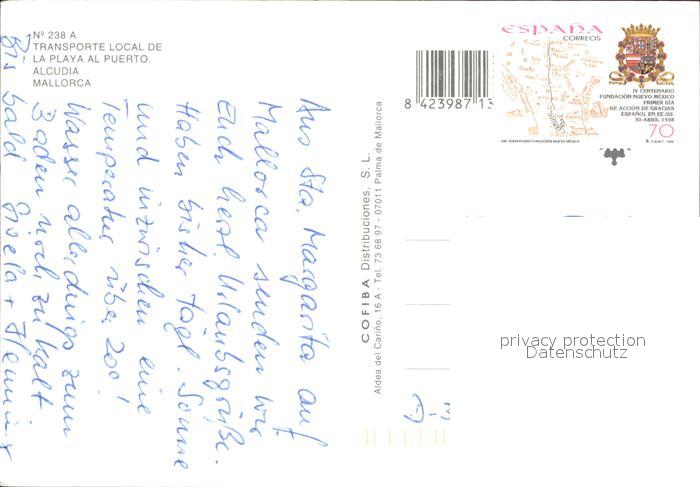 Nº 238 A
TRANSPORTE LOCAL DE
LA PLAYA AL PUERTO.
ALCUDIA
MALLORCA
Aus Sta. Margarita auf
Mallorca senden wir
Euch herzl. Urlaubsgrüße.
Haben bisher tägl. Sonne
und inzwischen eine
Temperatur über 20°!
Wasser allerdings zum
Baden noch zu kalt
Bis bald Gisela + Henning
COFIBA Distribuciones, S. L.
Aldea del Cariño, 16 A - Tel. 73 68 97 - 07011 Palma de Mallorca
8 423987 13
ESPAÑA
CORREOS
IV CENTENARIO
FUNDACIÓN NUEVO MÉXICO
PRIMER DÍA
DE ACCIÓN DE GRACIAS
ESPAÑOL EN EE.UU.
30-ABRIL-1598
70
privacy protection
Datenschutz